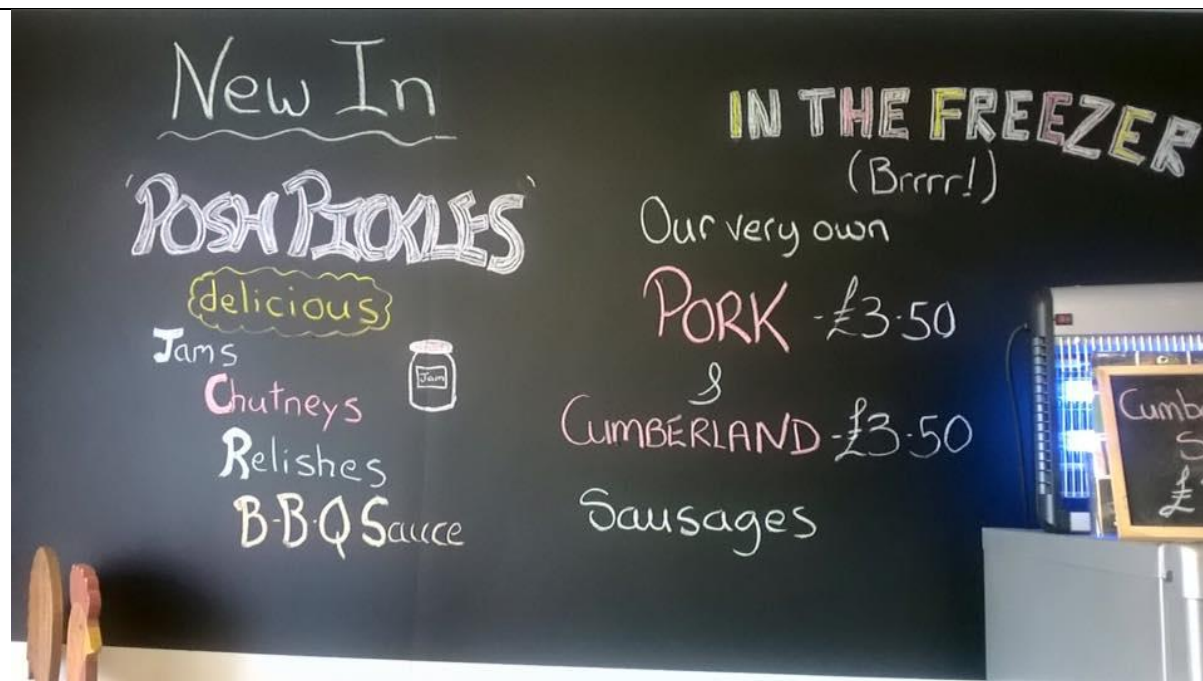 New In
'POSH PICKLES'
delicious
Jams
Jam
Chutneys
Relishes
B-B-Q Sauce
IN THE FREEZER
(Brrrr!)
Our very own
PORK -£3.50
&
CUMBERLAND -£3.50
Sausages